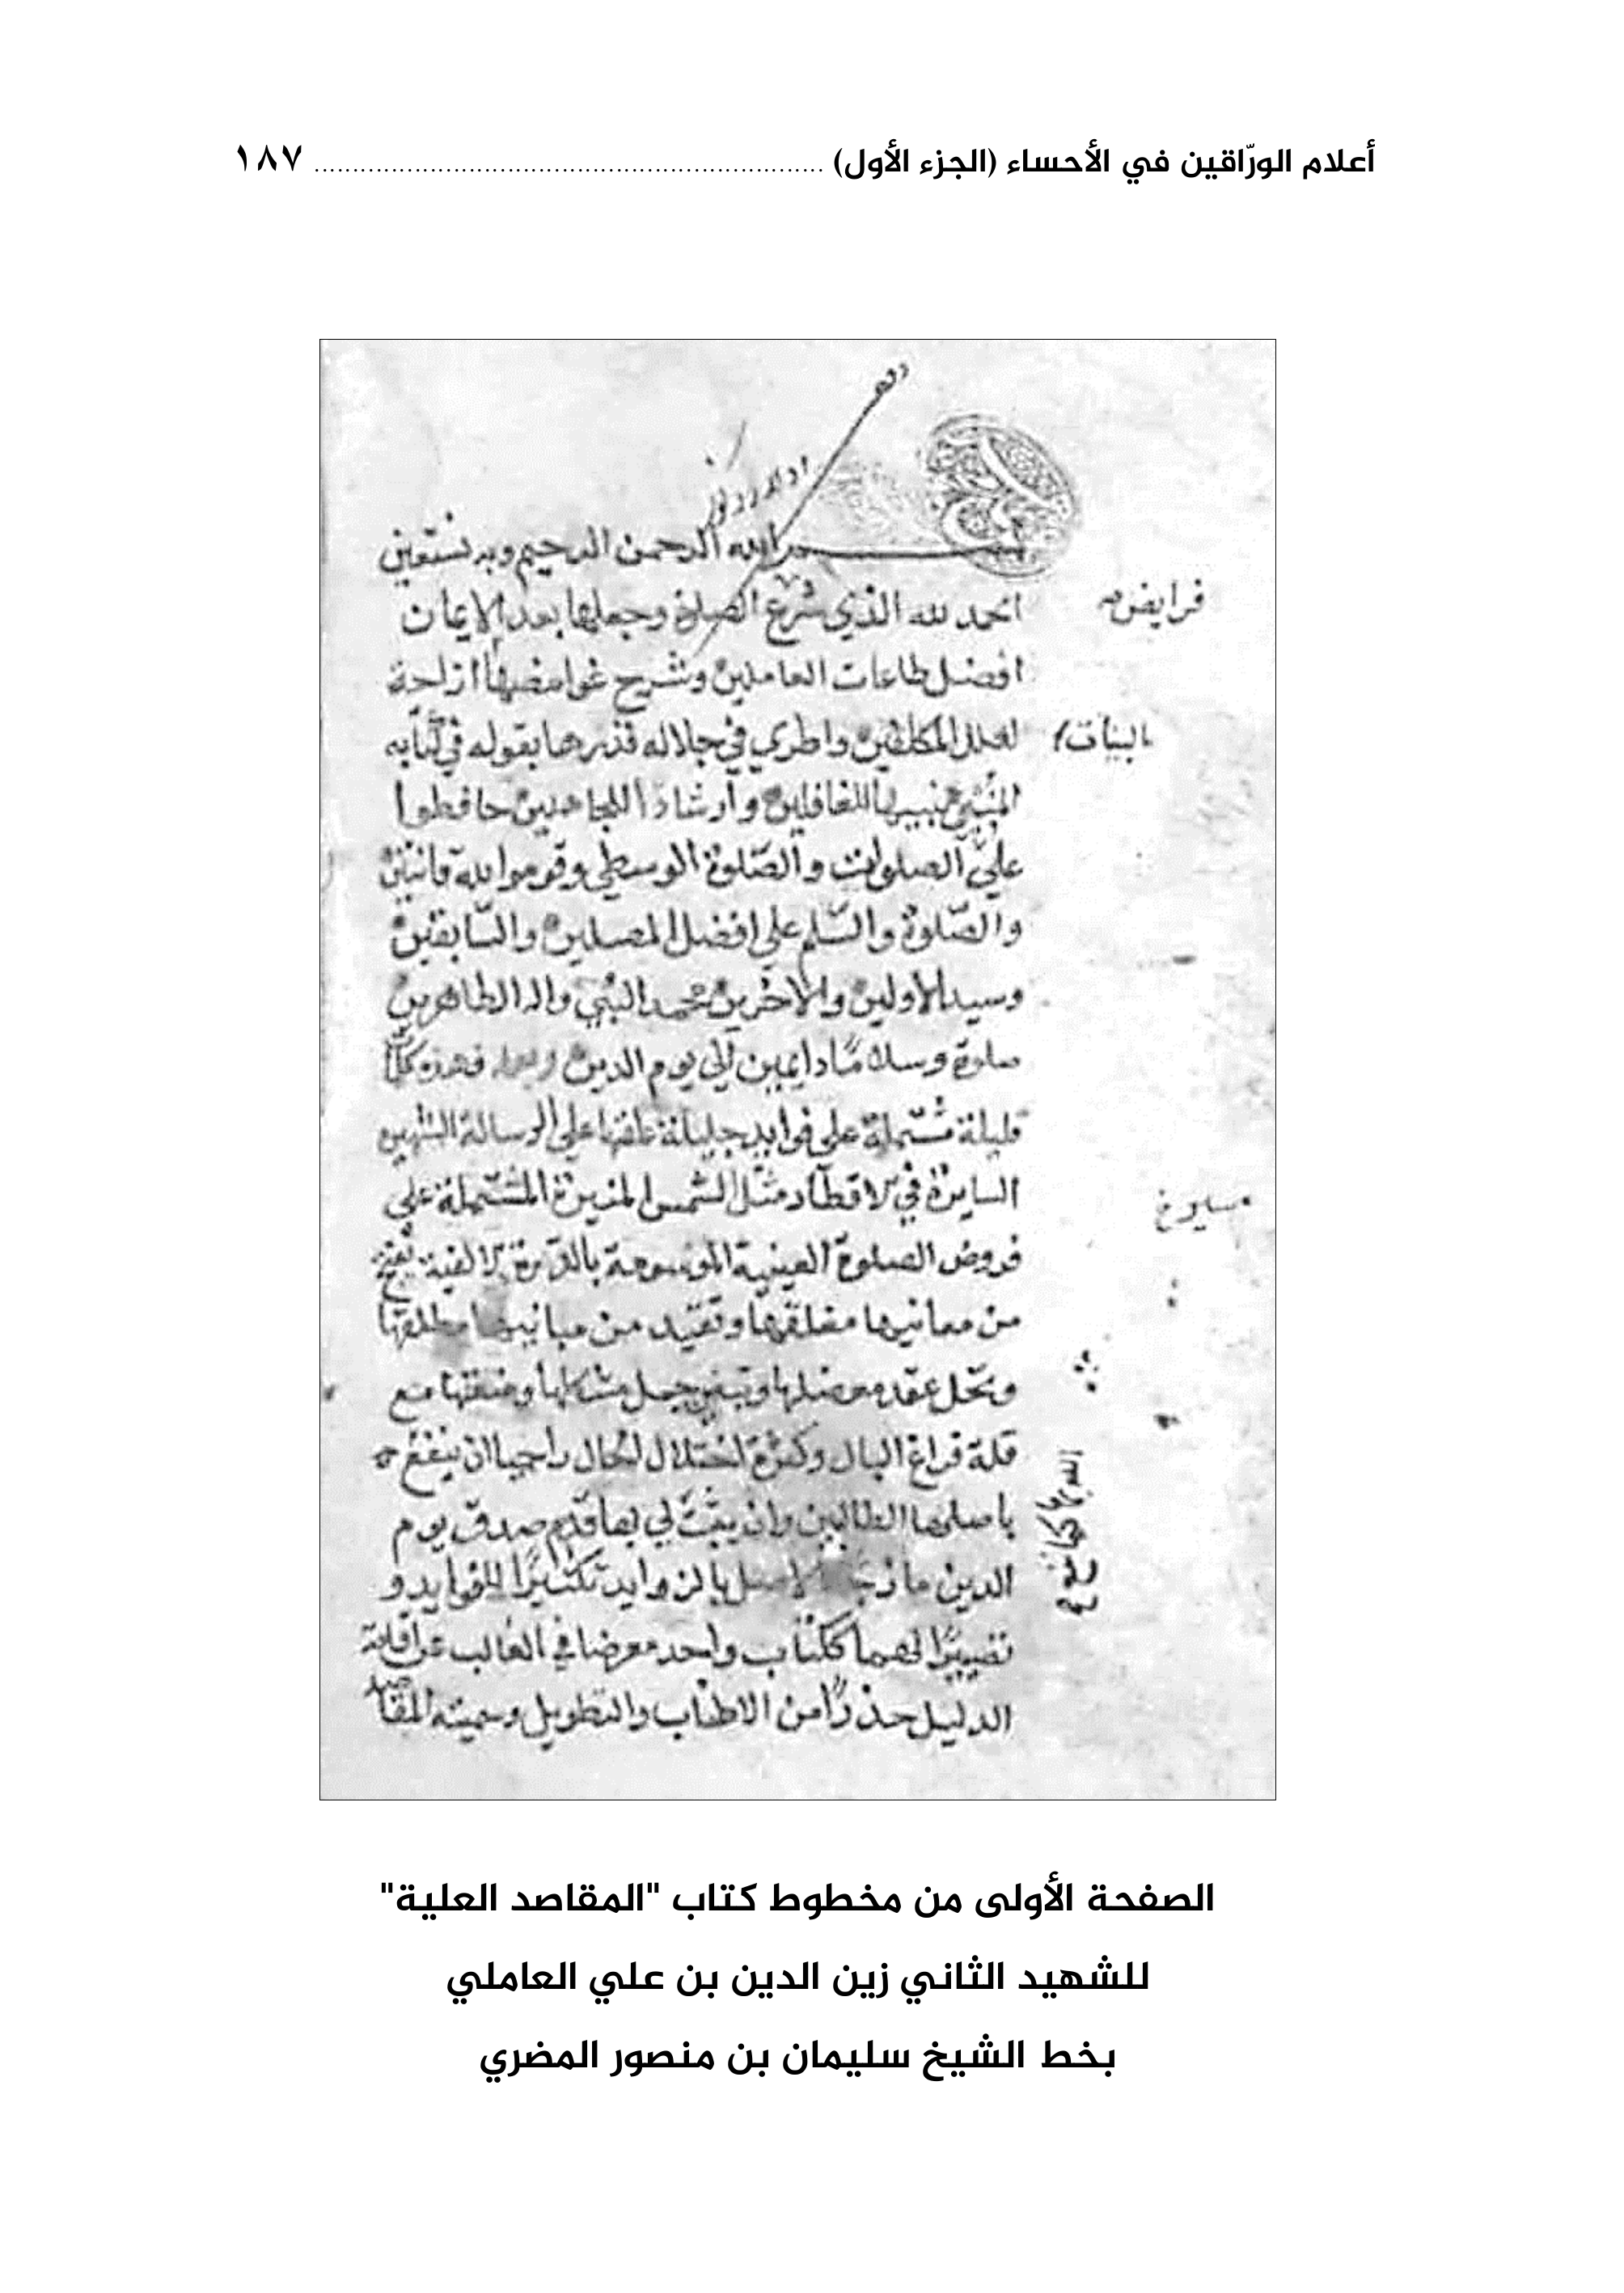 أعلام الورّاقين في الأحساء (الجزء الأول) ........ ١٨٧
بسم الله الرحمن الرحيم وبه نستعين
الحمد لله الذي شرع الصلوة وجعلها بعد الايمان
افضل طاعات العاملين وشرح غوامضها ازاحة
لعلل المكلفين واطري في جلاله قدرها بقوله في كتابه
المبين تنبيها للغافلين وارشادا للجاهلين حافظوا
علي الصلوات والصّلوة الوسطي وقوموا لله قانتين
والصّلوة والسّلم علي افضل المصلين والسّابقين
وسيد الاولين والاخرين محمد النبي واله الطاهرين
صلوة وسلامًا دايمين الي يوم الدين فهذه
قليلة مشتملة علي فوايد جليلة علقتها علي الرسالة الشهيرة
السايرة في الاقطار مثل الشمس المنيرة المشتملة علي
فروض الصلوة العينية الموسومة بالدّرة الالفية تفتح
من معانيها مغلقها وتقيد من مبانيها مطلقها
وتحل عقد معضلها وتبين جمل مشكلها مع
قلة فراغ البال وكثرة اختلال الحال راجيا ان ينفع
باصلها الطالبين وان يثبت لي بها قدم صدق يوم
الدين الاصل بالزوايد تكثيرًا للفوايد و
تصييرًا لهما ككتاب واحد معرضا في الغالب عن اقامة
الدليل حذرًا من الاطناب والتطويل وسميته المقاصد
فرايض
الصفحة الأولى من مخطوط كتاب "المقاصد العلية"
للشهيد الثاني زين الدين بن علي العاملي
بخط الشيخ سليمان بن منصور المضري